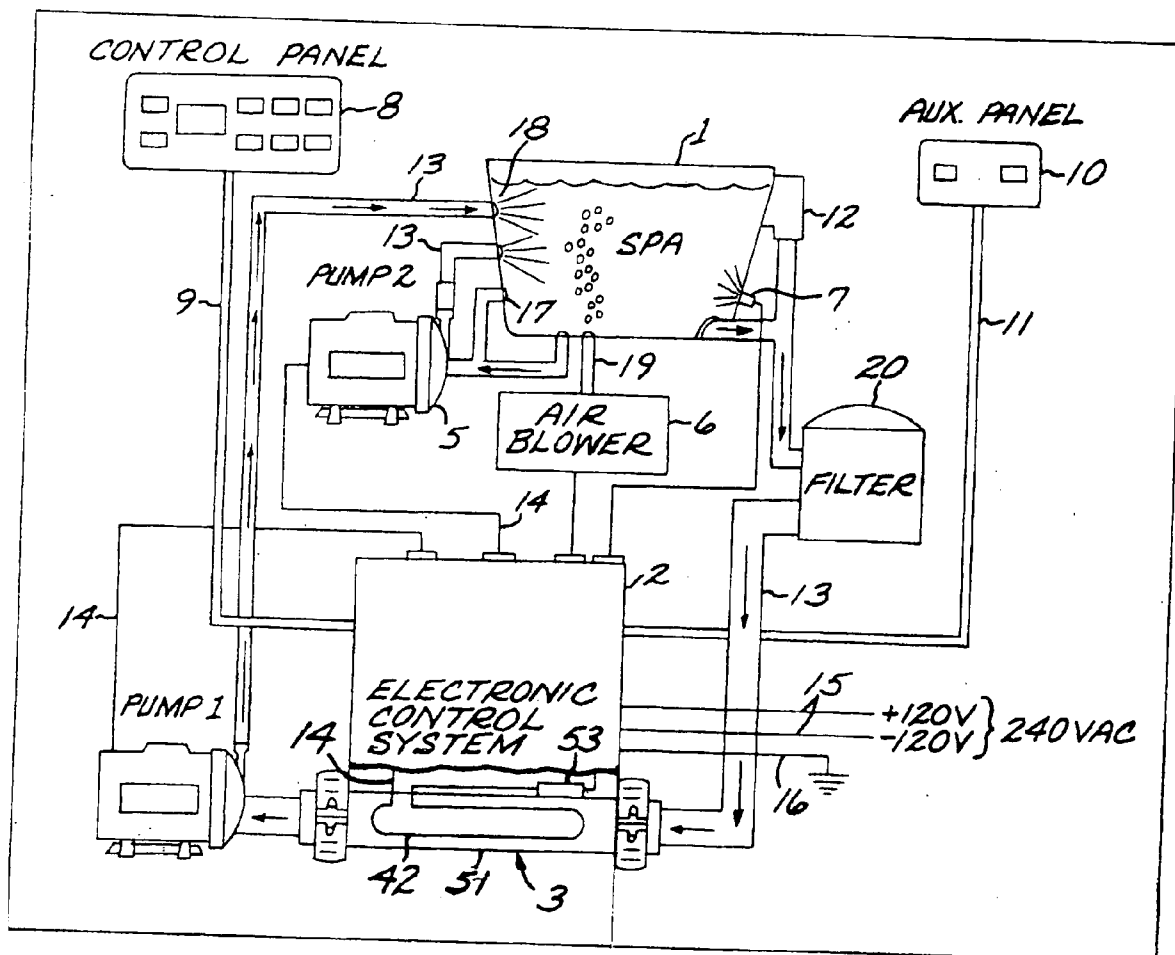 CONTROL PANEL
8
18
1
AUX. PANEL
10
13
12
SPA
13
PUMP 2
7
9
17
11
19
20
5
AIR
BLOWER
6
FILTER
14
2
13
14
ELECTRONIC
CONTROL
SYSTEM
15
+120V
-120V
} 240VAC
PUMP 1
14
53
16
42
51
3